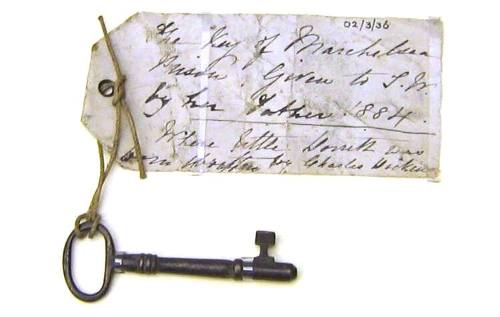 02/3/36
The Key of Marchelsea
Prison. Given to S. W
by her Father 1884.
Where little Dorrit was
born written by Charles Dickens